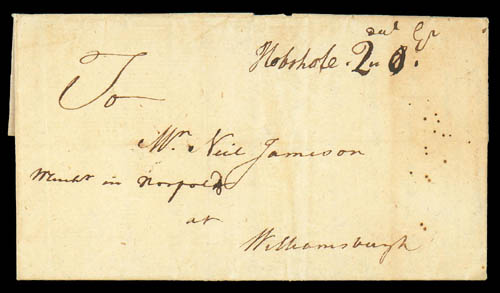 Hobshole. 2 6.
To
Mr. Neil Jameson
Mercht in Norfolk
at
Williamsburgh